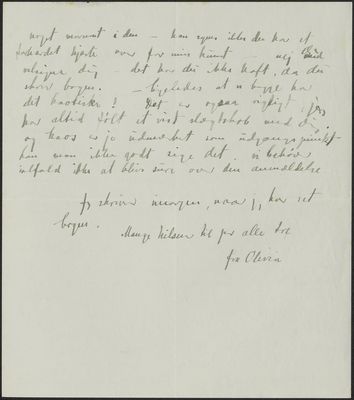 noget morsomt i den – kan synes ikke du har et
forhærdet hjerte over for min kunst nej Gud
velsigne dig – det har du ikke haft, da du
skrev bogen. – ligeledes at vi begge har
det kaotiske! Det er ogsaa rigtigt, jeg
har altid følt et vist slægtskab med dig,
og kaos er jo udmærket som udgangspunkt
kan man ikke godt sige det. vi behøver
ialfald ikke at blive sure over den anmeldelse
Jeg skriver imorgen, naar jeg har set
bogen.
Mange hilsner til jer alle tre
fra Olivia